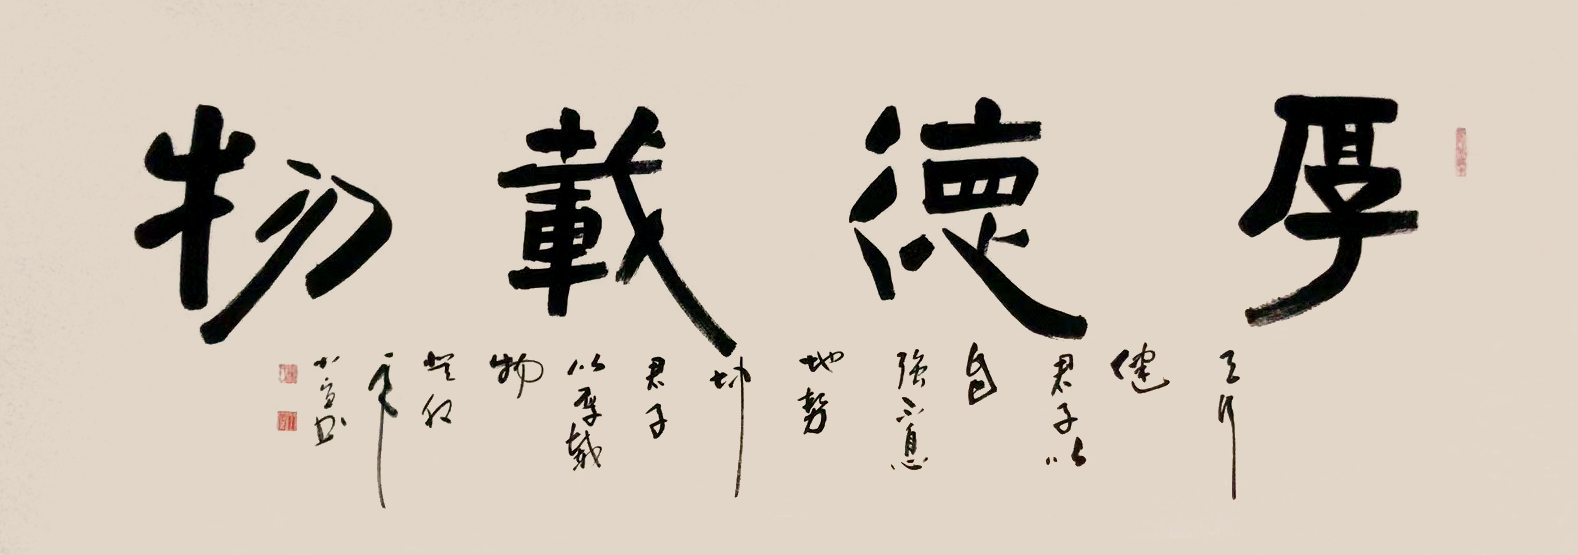 厚德載物
天行
健
君子以
自
強不息
地勢
坤
君子
以厚載
物